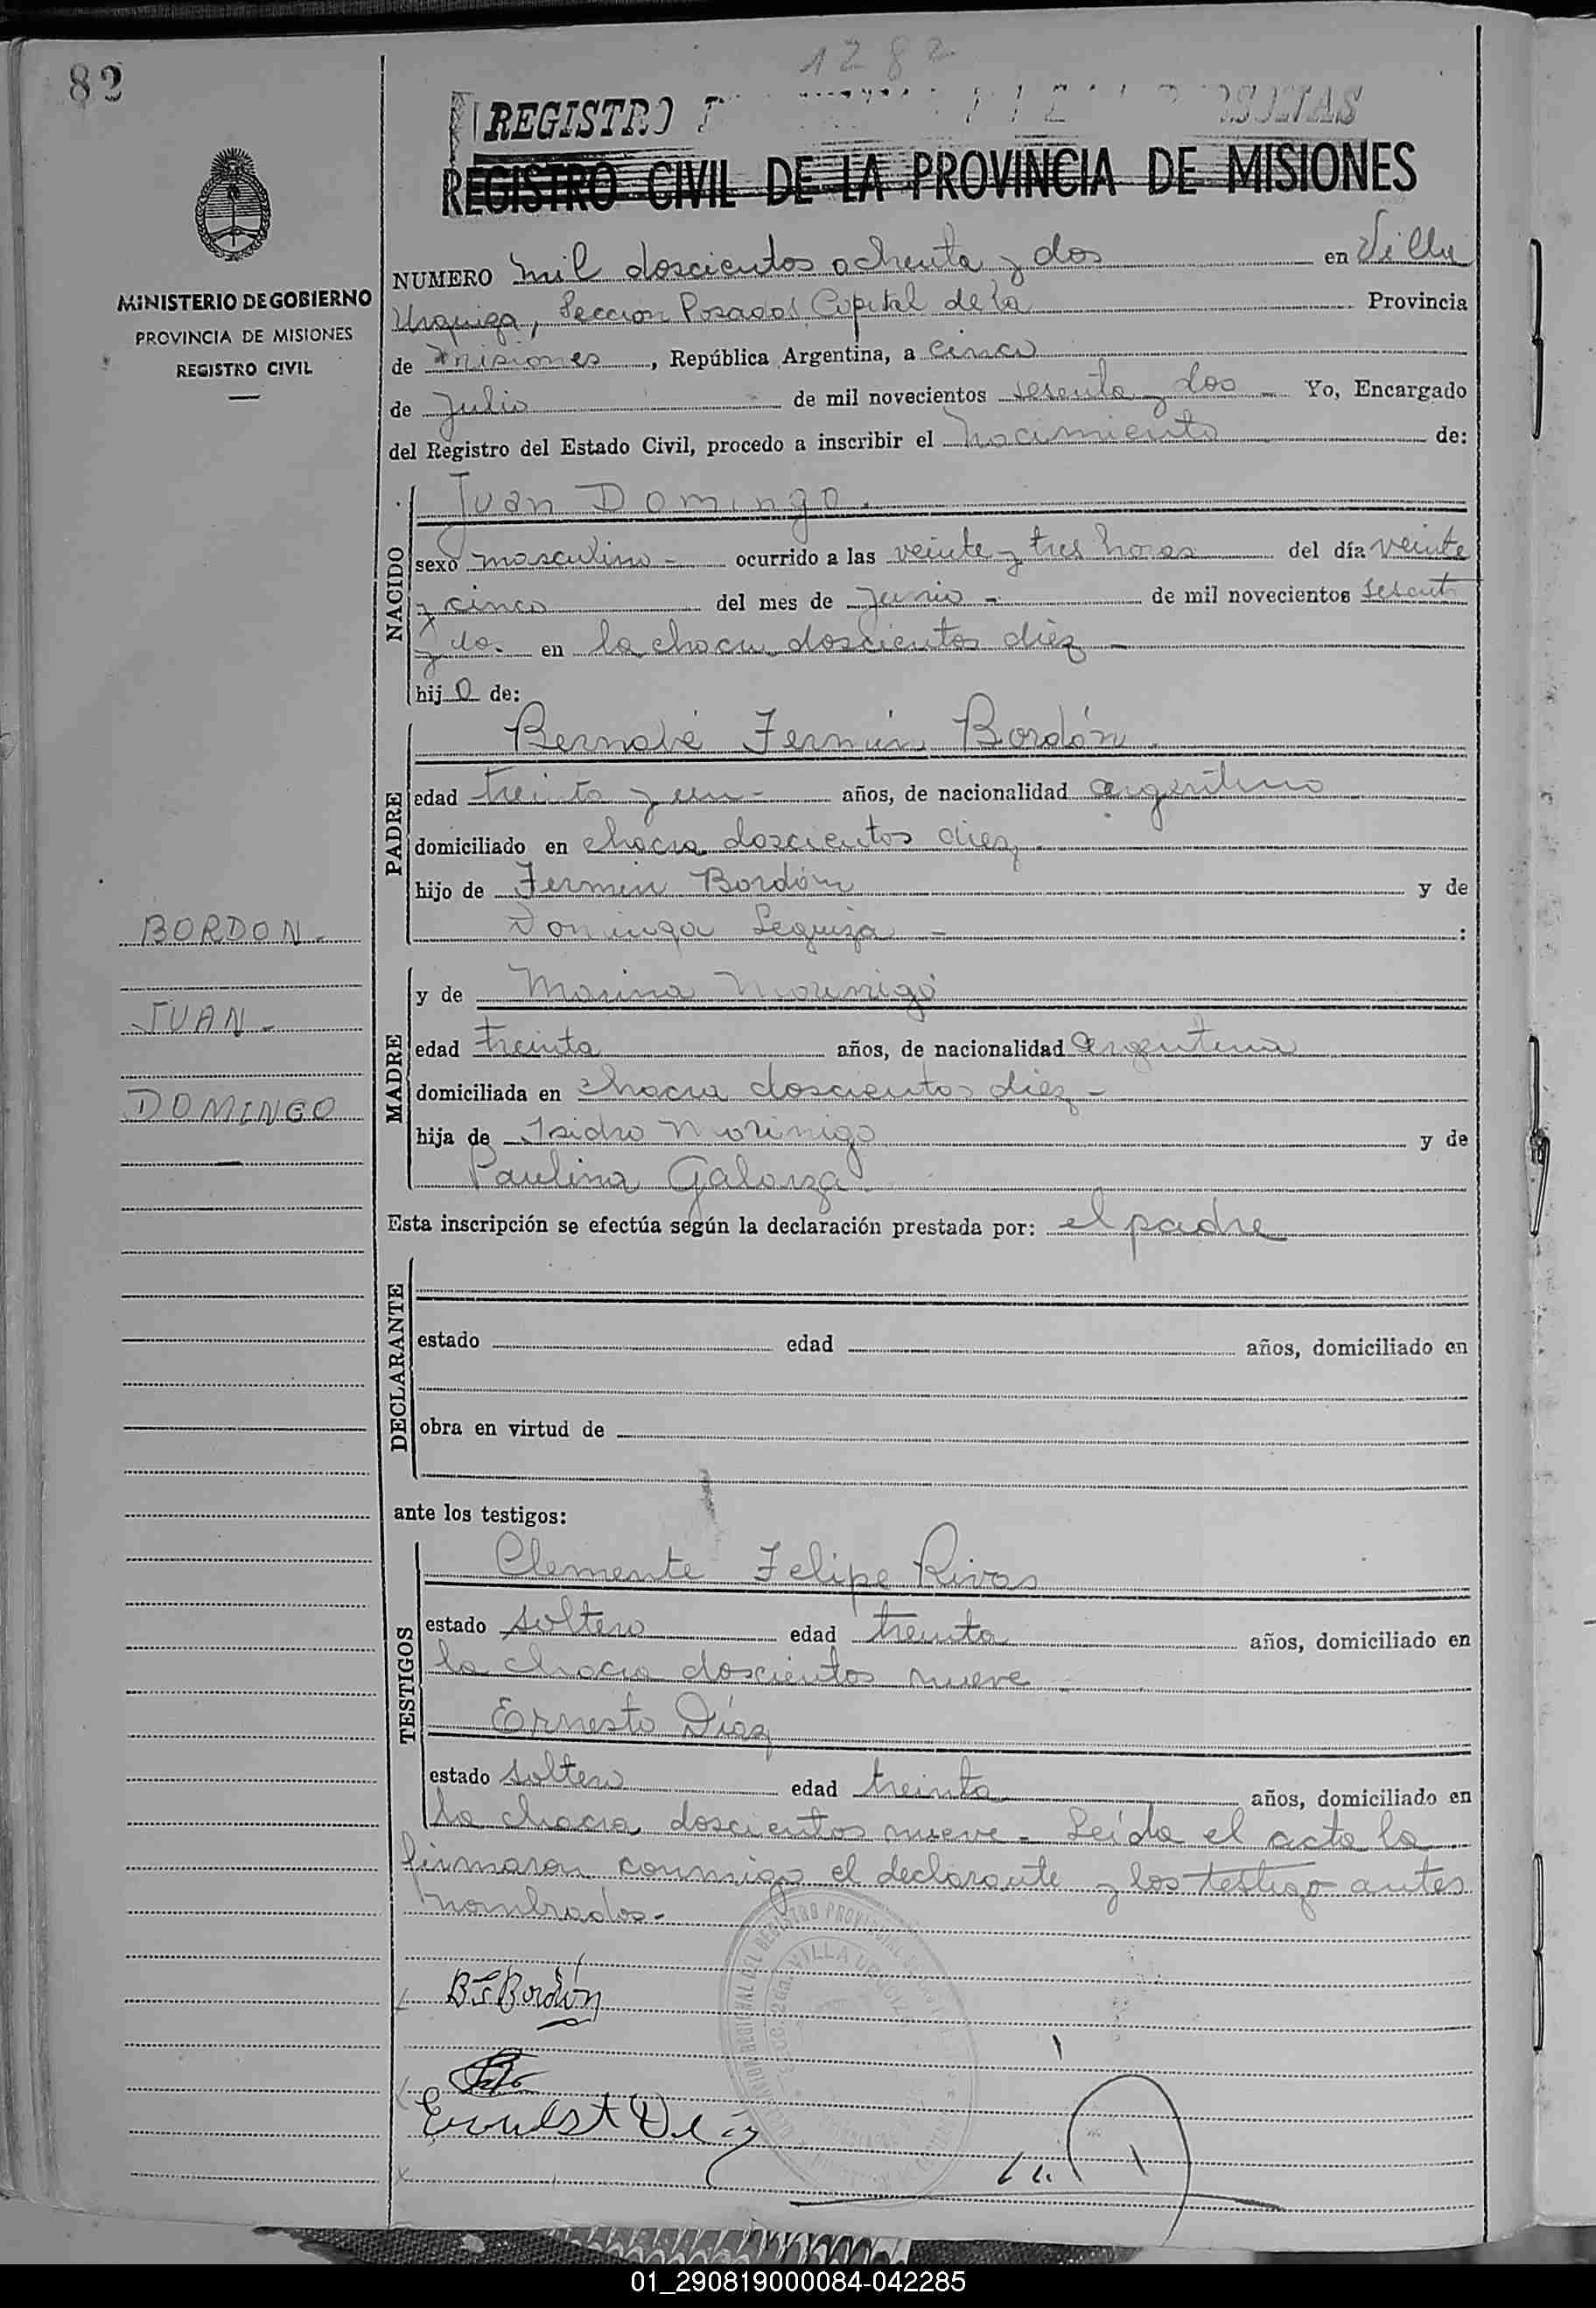 82
1282
REGISTRO
REGISTRO CIVIL DE LA PROVINCIA DE MISIONES
MINISTERIO DE GOBIERNO
PROVINCIA DE MISIONES
REGISTRO CIVIL
NUMERO mil doscientos ochenta y dos en Villa
Urquiza, Sección Posadas Capital de la Provincia
de Misiones, República Argentina, a cinco
de Julio de mil novecientos sesenta y dos Yo, Encargado
del Registro del Estado Civil, procedo a inscribir el nacimiento de:
NACIDO
Juan Domingo.
sexo masculino - ocurrido a las veinte y tres horas del día veinte
y cinco del mes de Junio - de mil novecientos sesent
y do. en la chacra doscientos diez -
hijo de:
PADRE
Bernabé Fermín Bordón.
edad treinta y un - años, de nacionalidad argentino
domiciliado en chacra doscientos diez.
hijo de Fermin Bordón y de
Dominga Leguiza - :
BORDON -
JUAN -
DOMINGO
MADRE
y de Marina Morinigo
edad treinta años, de nacionalidad argentina
domiciliada en chacra doscientos diez -
hija de Isidro Morinigo y de
Paulina Galarza.
Esta inscripción se efectúa según la declaración prestada por: el padre
DECLARANTE
estado edad años, domiciliado en
obra en virtud de
ante los testigos:
TESTIGOS
Clemente Felipe Rivas
estado soltero edad treinta años, domiciliado en
la chacra doscientos nueve -
Ernesto Díaz
estado soltero edad treinta años, domiciliado en
la chacra doscientos nueve - Leída el acta la
firmaron conmigo el declarante y los testigo antes
nombrados -
B F Bordón
Ernest Diaz
01_290819000084-042285